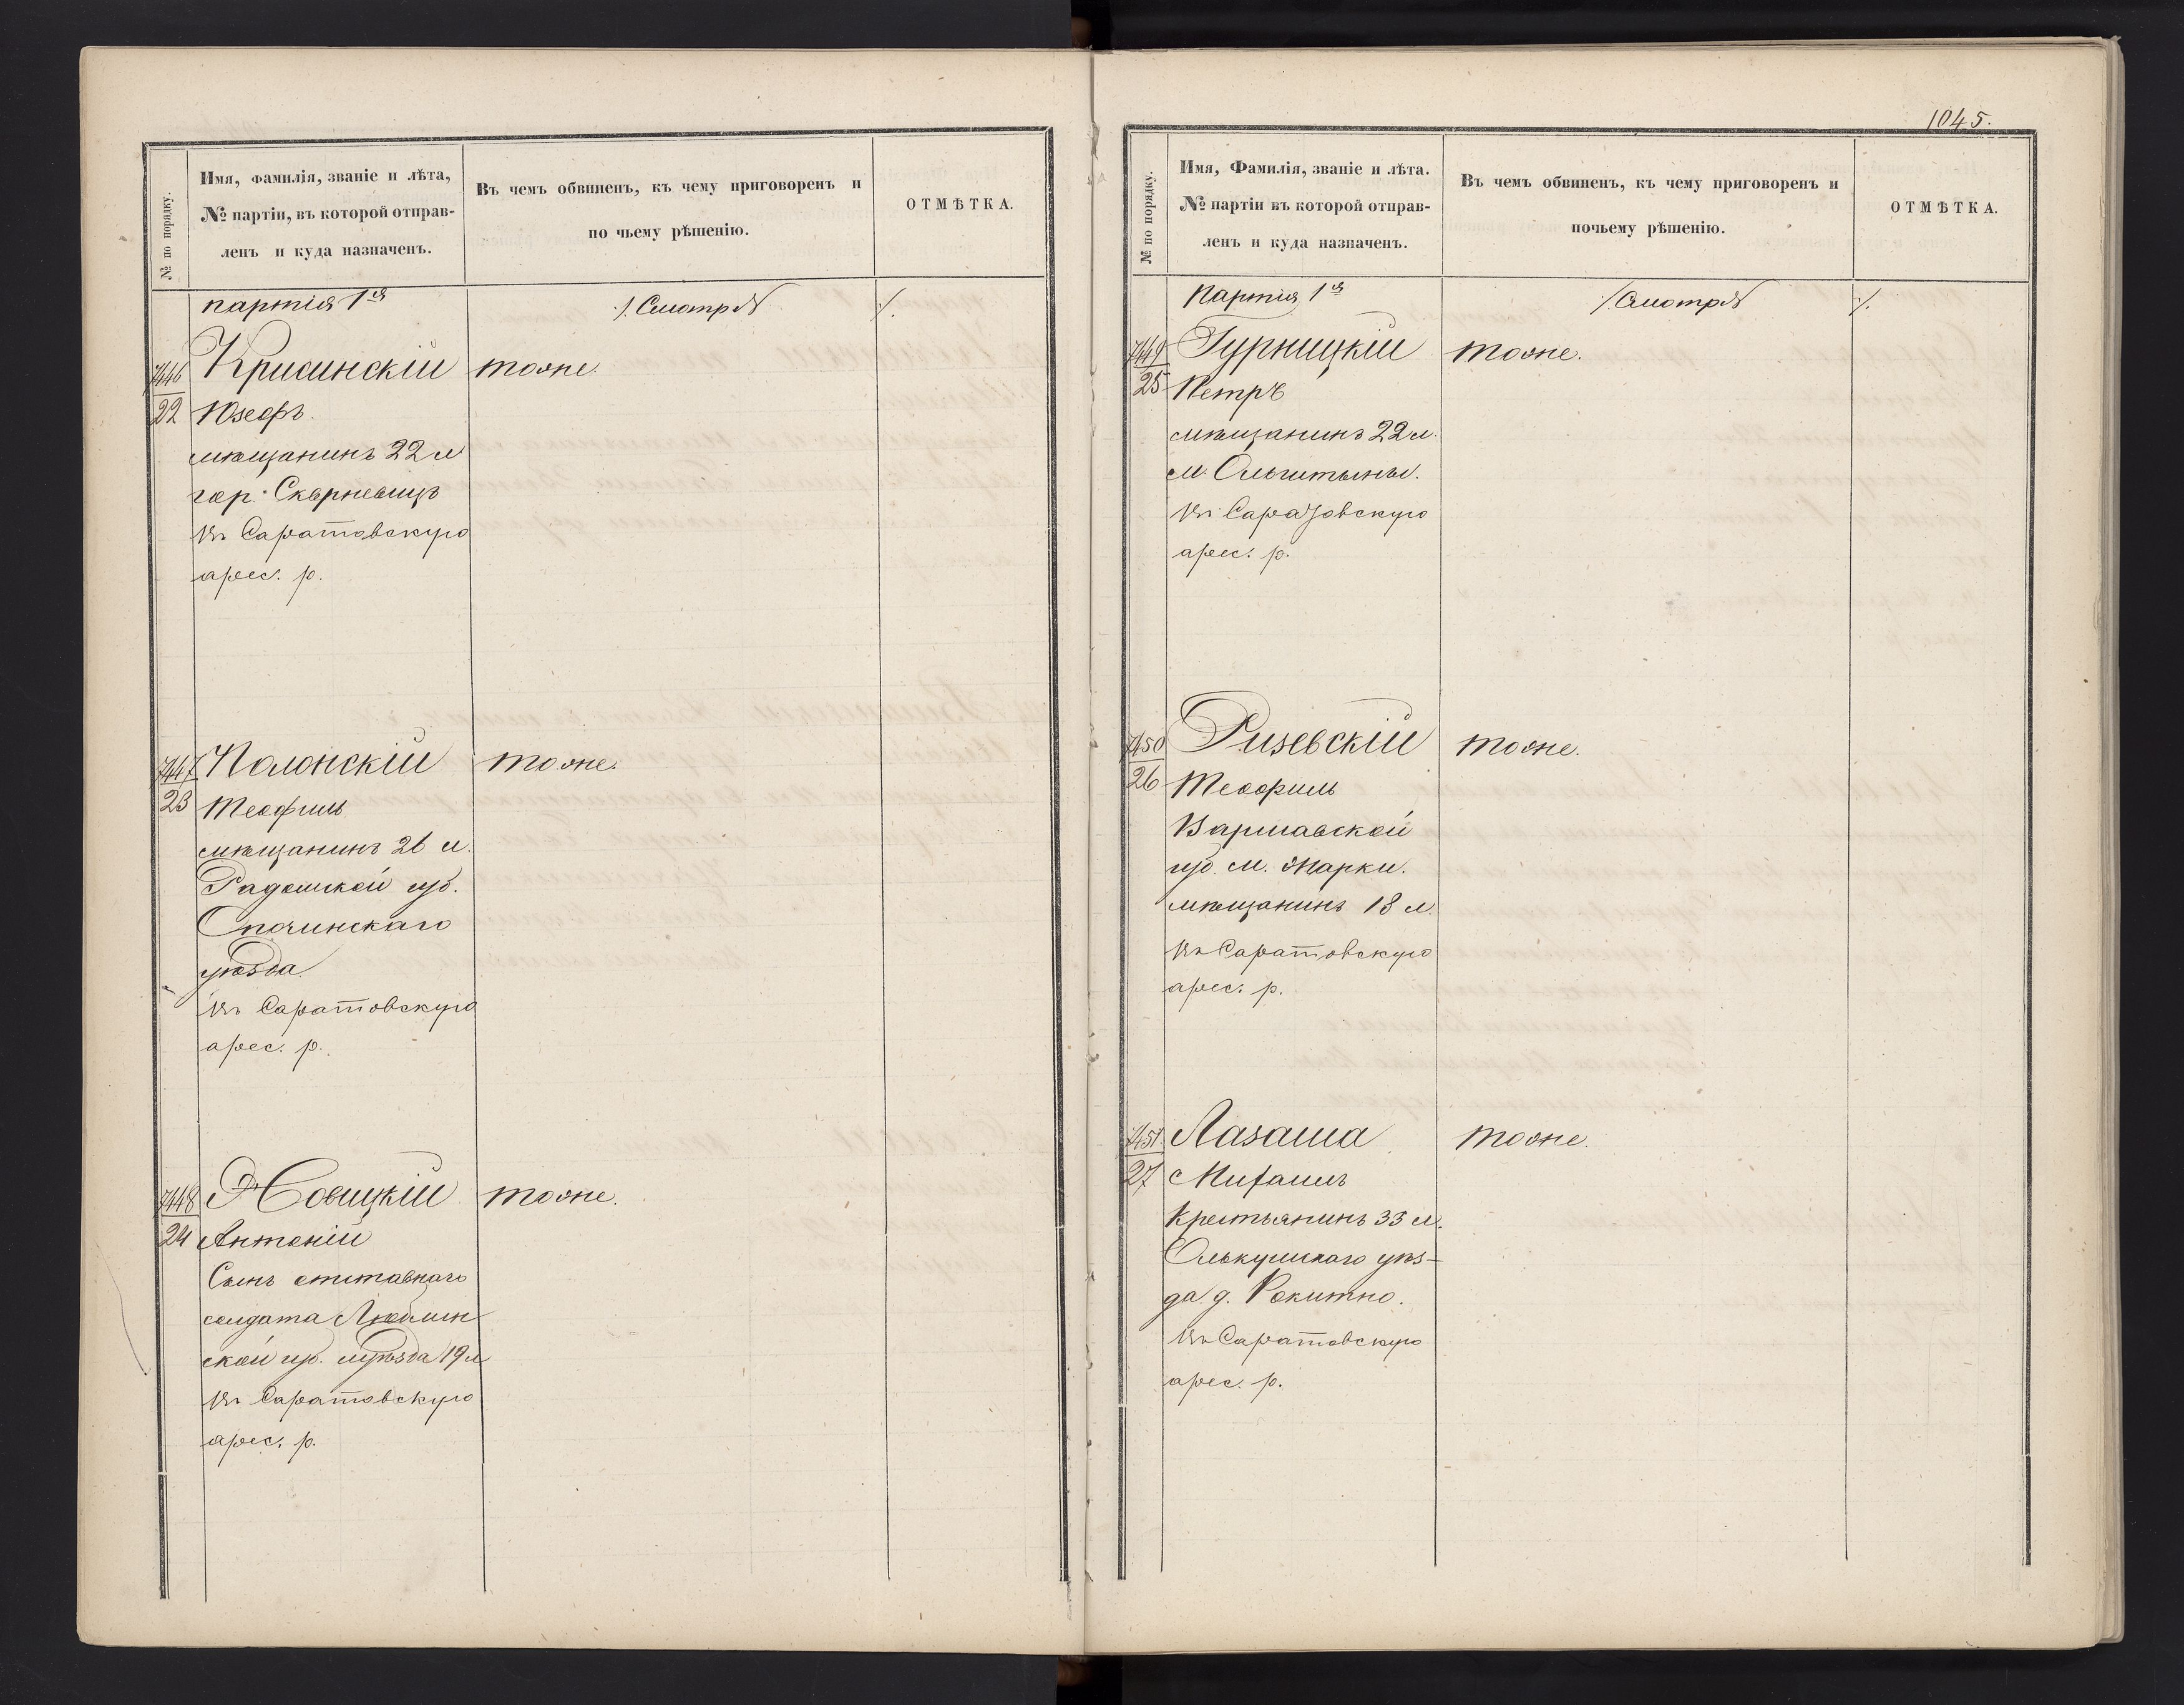 № по порядку.
Имя, фамилія, званіе и лѣта,
№ партіи, въ которой отправ-
ленъ и куда назначенъ.
Въ чемъ обвиненъ, къ чему приговоренъ и
по чьему рѣшенію.
ОТМѢТКА.
партія 1я
·/. Смотр №
·/.
7446
22
Крисинскій
тоже.
Юзефъ.
мѣщанинъ 22 л
гор. Скерневицъ
въ Саратовскую
арес. р.
7447
23
Полонскій
тоже.
Теофиль
мѣщанинъ 26 л.
Радомской губ.
Опочинскаго
уѣзда
въ Саратовскую
арес. р.
7448
24
Новицкій
тоже.
Антоній
Сынъ отставнаго
солдата Люблин
ской гу. и уѣзда 19 л
въ Саратовскую
арес. р.
1045.
№ по порядку.
Имя, Фамилія, званіе и лѣта.
№ партіи въ которой отправ-
ленъ и куда назначенъ.
Въ чемъ обвиненъ, къ чему приговоренъ и
почьему рѣшенію.
ОТМѢТКА.
Партія 1я
·/. Смотр №
·/.
7449
25
Гурницкій
тоже.
Петръ
мѣщанинъ 22 л.
м. Ольштыны.
въ Саратовскую
арес. р.
7450
26
Ризевскій
тоже.
Теофиль
Варшавской
губ. м. Жарки.
мѣщанинъ 18 л.
въ Саратовскую
арес. р.
7451.
27
Лазаша
тоже.
Михаилъ
Крестьянинъ 33 л.
Олькушскаго уѣз-
да д. Рокитно.
въ Саратовскую
арес. р.